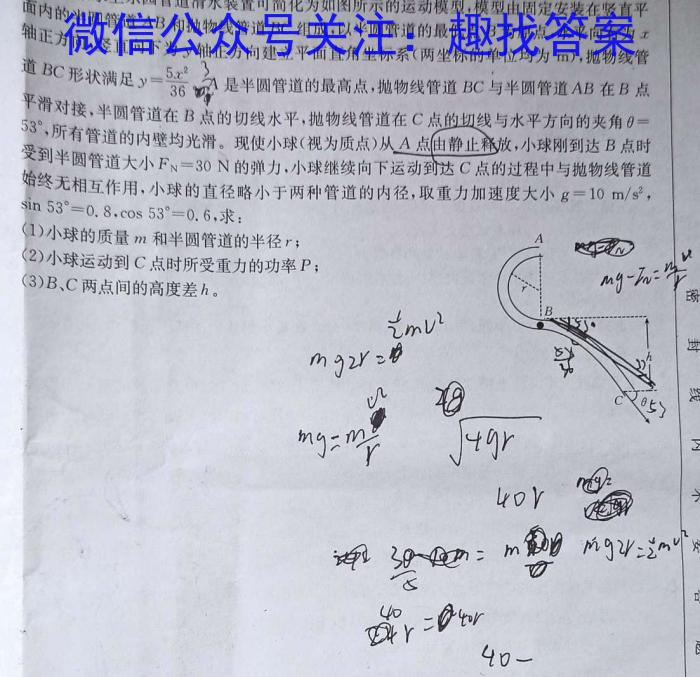 道滑水装置可简化为如图所示的运动模型,模型由固定安装在竖直平
微信公众号关注:趣找答案
道 BC 形状满足 y=5x²/36 A 是半圆管道的最高点,抛物线管道 BC 与半圆管道 AB 在 B 点
平滑对接,半圆管道在 B 点的切线水平,抛物线管道在 C 点的切线与水平方向的夹角 θ=
53°,所有管道的内壁均光滑。现使小球(视为质点)从 A 点由静止释放,小球刚到达 B 点时
受到半圆管道大小 F_N=30 N 的弹力,小球继续向下运动到达 C 点的过程中与抛物线管道
始终无相互作用,小球的直径略小于两种管道的内径,取重力加速度大小 g=10 m/s²,
sin 53°=0.8,cos 53°=0.6,求:
(1)小球的质量 m 和半圆管道的半径 r;
(2)小球运动到 C 点时所受重力的功率 P;
(3)B、C 两点间的高度差 h。
A
r
B
h
C
θ 53
mg-F_N=m v²/r
mg2r= ½mv²
mg=m v²/r
√4gr
40r
mg2r=½mv²
=40r
40-
密
封
线
内
不
要
答
题